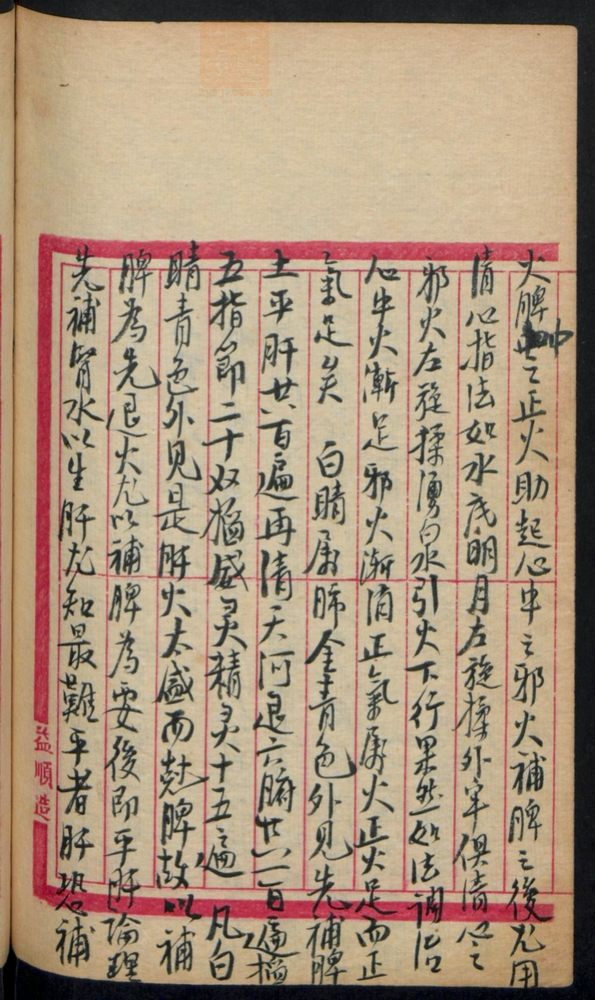 火脾中之正火助起心中之邪火補脾之後尤用
清心指法如水底明月左旋揉外牢俱清心之
邪火左旋揉湧泉引火下行果然如法調治
心中火漸足邪火漸消正氣屬火正火足而正
氣足矣 白睛屬肺金青色外見先補脾
土平肝廿六百遍再清天河退六腑廿六百遍搯
五指節二十次猛盛灵精灵十五遍 凡白
睛青色外見是肝火太盛而尅脾故以補
脾為先退火尤以補脾為要後即平肝論理
先補腎水以生肝尤知最難平者肝恐補
益順造